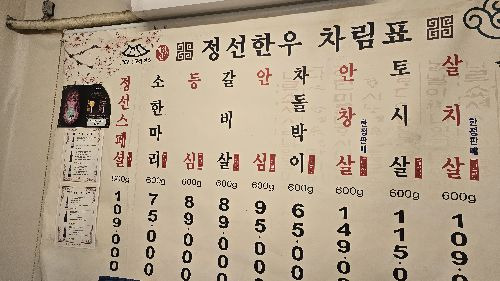 정선한우 차림표
정선스페셜
1200g
109,000
소한마리
600g
75,000
등심
600g
89,000
갈비살
600g
89,000
안심
600g
95,000
차돌박이
600g
65,000
안창살
한정판매
600g
149,0
토시살
600g
115,0
살치살
한정판매
600g
109,